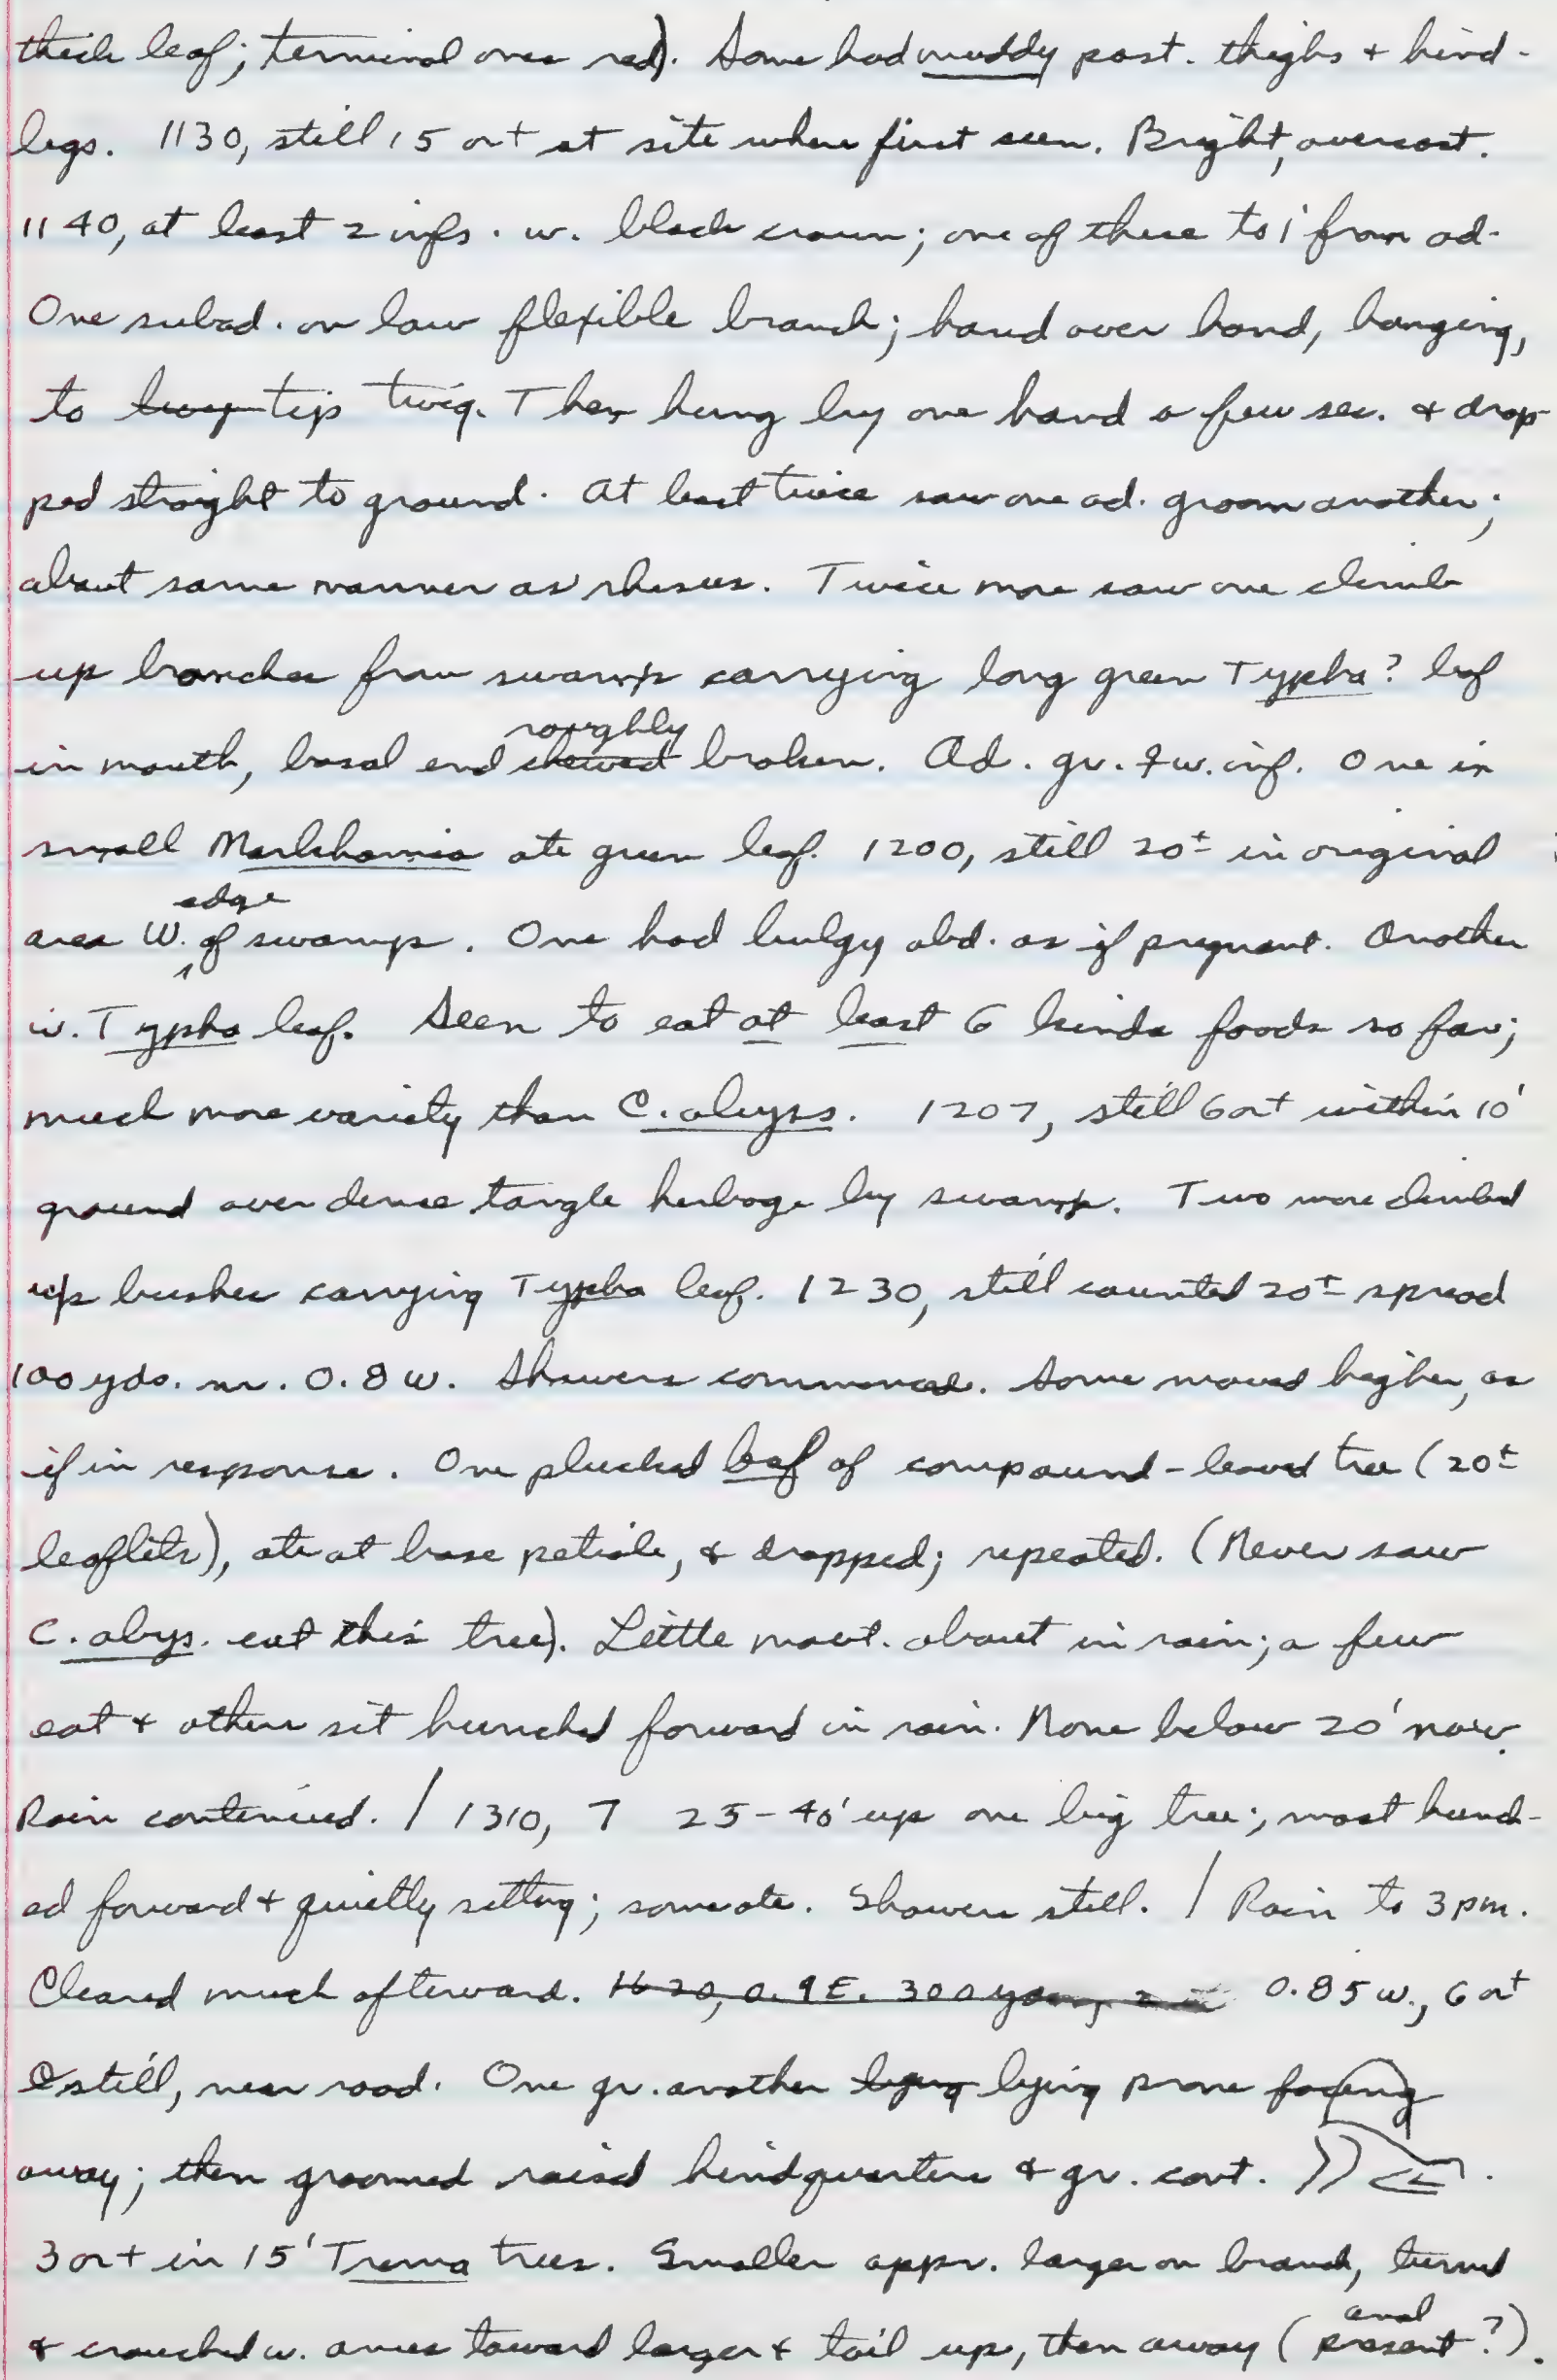 thick leaf; terminal ones red). Some had muddy post. thighs + hind-
legs. 1130, still 15 or + at site where first seen. Bright, overcast.
1140, at least 2 infs. w. black crown; one of these to 1' from ad.
One subad. on low flexible branch; hand over hand, hanging,
to tip twig. Then hung by one hand a few sec. & drop-
ped straight to ground. At least twice saw one ad. groom another;
about same manner as rhesus. Twice more saw one climb
up branches from swamp carrying long green Typha? leaf
in mouth, basal end chewed roughly broken. Ad. gr. ♀ w. inf. One in
small Markhamia ate green leaf. 1200, still 20± in original
area W. edge of swamp. One had bulgy abd. as if pregnant. Another
w. Typha leaf. Seen to eat at least 6 kinds foods so far;
much more variety than C. abyss. 1207, still 6 or + within 10'
ground over dense tangle herbage by swamp. Two more climbed
up bushes carrying Typha leaf. 1230, still counted 20± spread
100 yds. nr. 0.8 W. Showers commenced. Some moved higher, as
if in response. One plucked leaf of compound-leaved tree (20±
leaflets), ate at base petiole, & dropped; repeated. (Never saw
C. abys. eat this tree). Little movt. about in rain; a few
eat + others sit hunched forward in rain. None below 20' now.
Rain continued. / 1310, 7 25-40' up one big tree; most hunch-
ed forward + quietly sitting; some ate. Showers still. / Rain to 3 pm.
Cleared much afterward. 1620, 0.9 E. 300 yds 0.85 W., 6 or +
still, near road. One gr. another lying prone facing
away; then groomed raised hindquarters & gr. cont.
3 or + in 15' Trema trees. Smaller appr. larger on branch, turned
& crouched w. anus toward larger + tail up, then away (anal present?).